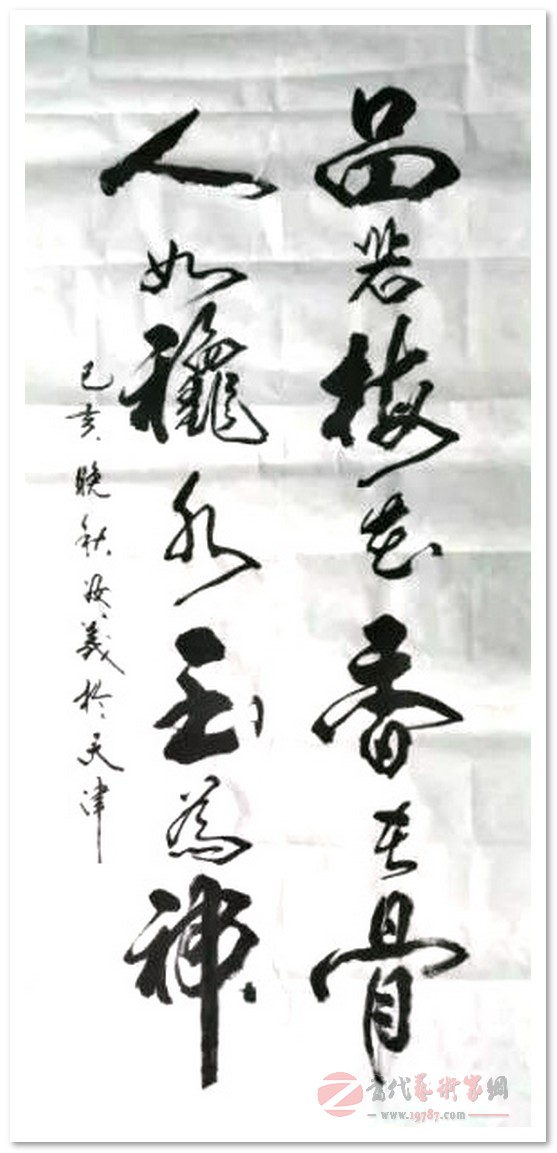 品若梅花香在骨
人如秋水玉为神
己亥晚秋汝义於天津
当代艺术家网
www.19787.com